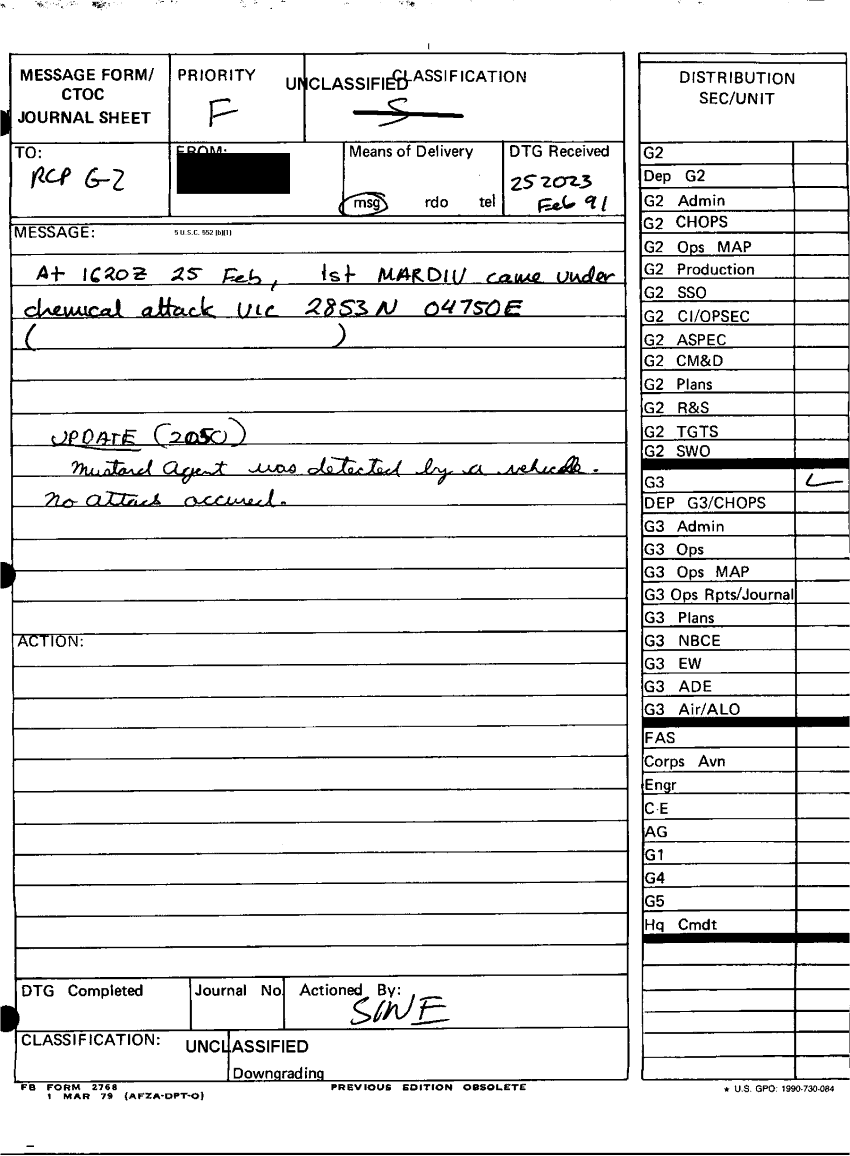 MESSAGE FORM/
CTOC
JOURNAL SHEET
PRIORITY
F
UNCLASSIFIED
CLASSIFICATION
S
TO:
RCP G-2
FROM:
Means of Delivery
msg rdo tel
DTG Received
252023
Feb 91
MESSAGE:
5 U.S.C. 552 (b)(1)
At 1620Z 25 Feb, 1st MARDIV came under
chemical attack VIC 2853N 04750E
( )
UPDATE (2050)
Mustard Agent was detected by a vehicle.
No attack occured.
ACTION:
DTG Completed
Journal No
Actioned By:
CLASSIFICATION:
UNCLASSIFIED
Downgrading
FB FORM 2768
1 MAR 79 (AFZA-DPT-O)
PREVIOUS EDITION OBSOLETE
DISTRIBUTION
SEC/UNIT
G2
Dep G2
G2 Admin
G2 CHOPS
G2 Ops MAP
G2 Production
G2 SSO
G2 CI/OPSEC
G2 ASPEC
G2 CM&D
G2 Plans
G2 R&S
G2 TGTS
G2 SWO
G3
DEP G3/CHOPS
G3 Admin
G3 Ops
G3 Ops MAP
G3 Ops Rpts/Journal
G3 Plans
G3 NBCE
G3 EW
G3 ADE
G3 Air/ALO
FAS
Corps Avn
Engr
C-E
AG
G1
G4
G5
Hq Cmdt
★ U.S. GPO: 1990-730-084